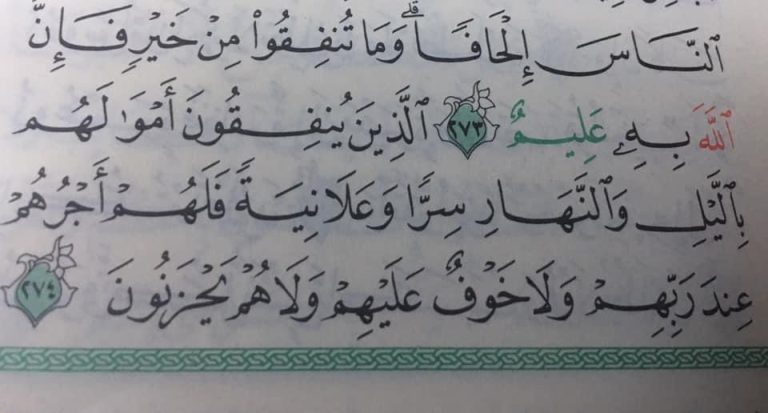 ٱلنَّاسَ إِلۡحَافًاۗ وَمَا تُنفِقُواْ مِنۡ خَيۡرٖ فَإِنَّ
ٱللَّهَ بِهِۦ عَلِيمٌ ٢٧٣ ٱلَّذِينَ يُنفِقُونَ أَمۡوَٰلَهُم
بِٱلَّيۡلِ وَٱلنَّهَارِ سِرّٗا وَعَلَانِيَةٗ فَلَهُمۡ أَجۡرُهُمۡ
عِندَ رَبِّهِمۡ وَلَا خَوۡفٌ عَلَيۡهِمۡ وَلَا هُمۡ يَحۡزَنُونَ ٢٧٤